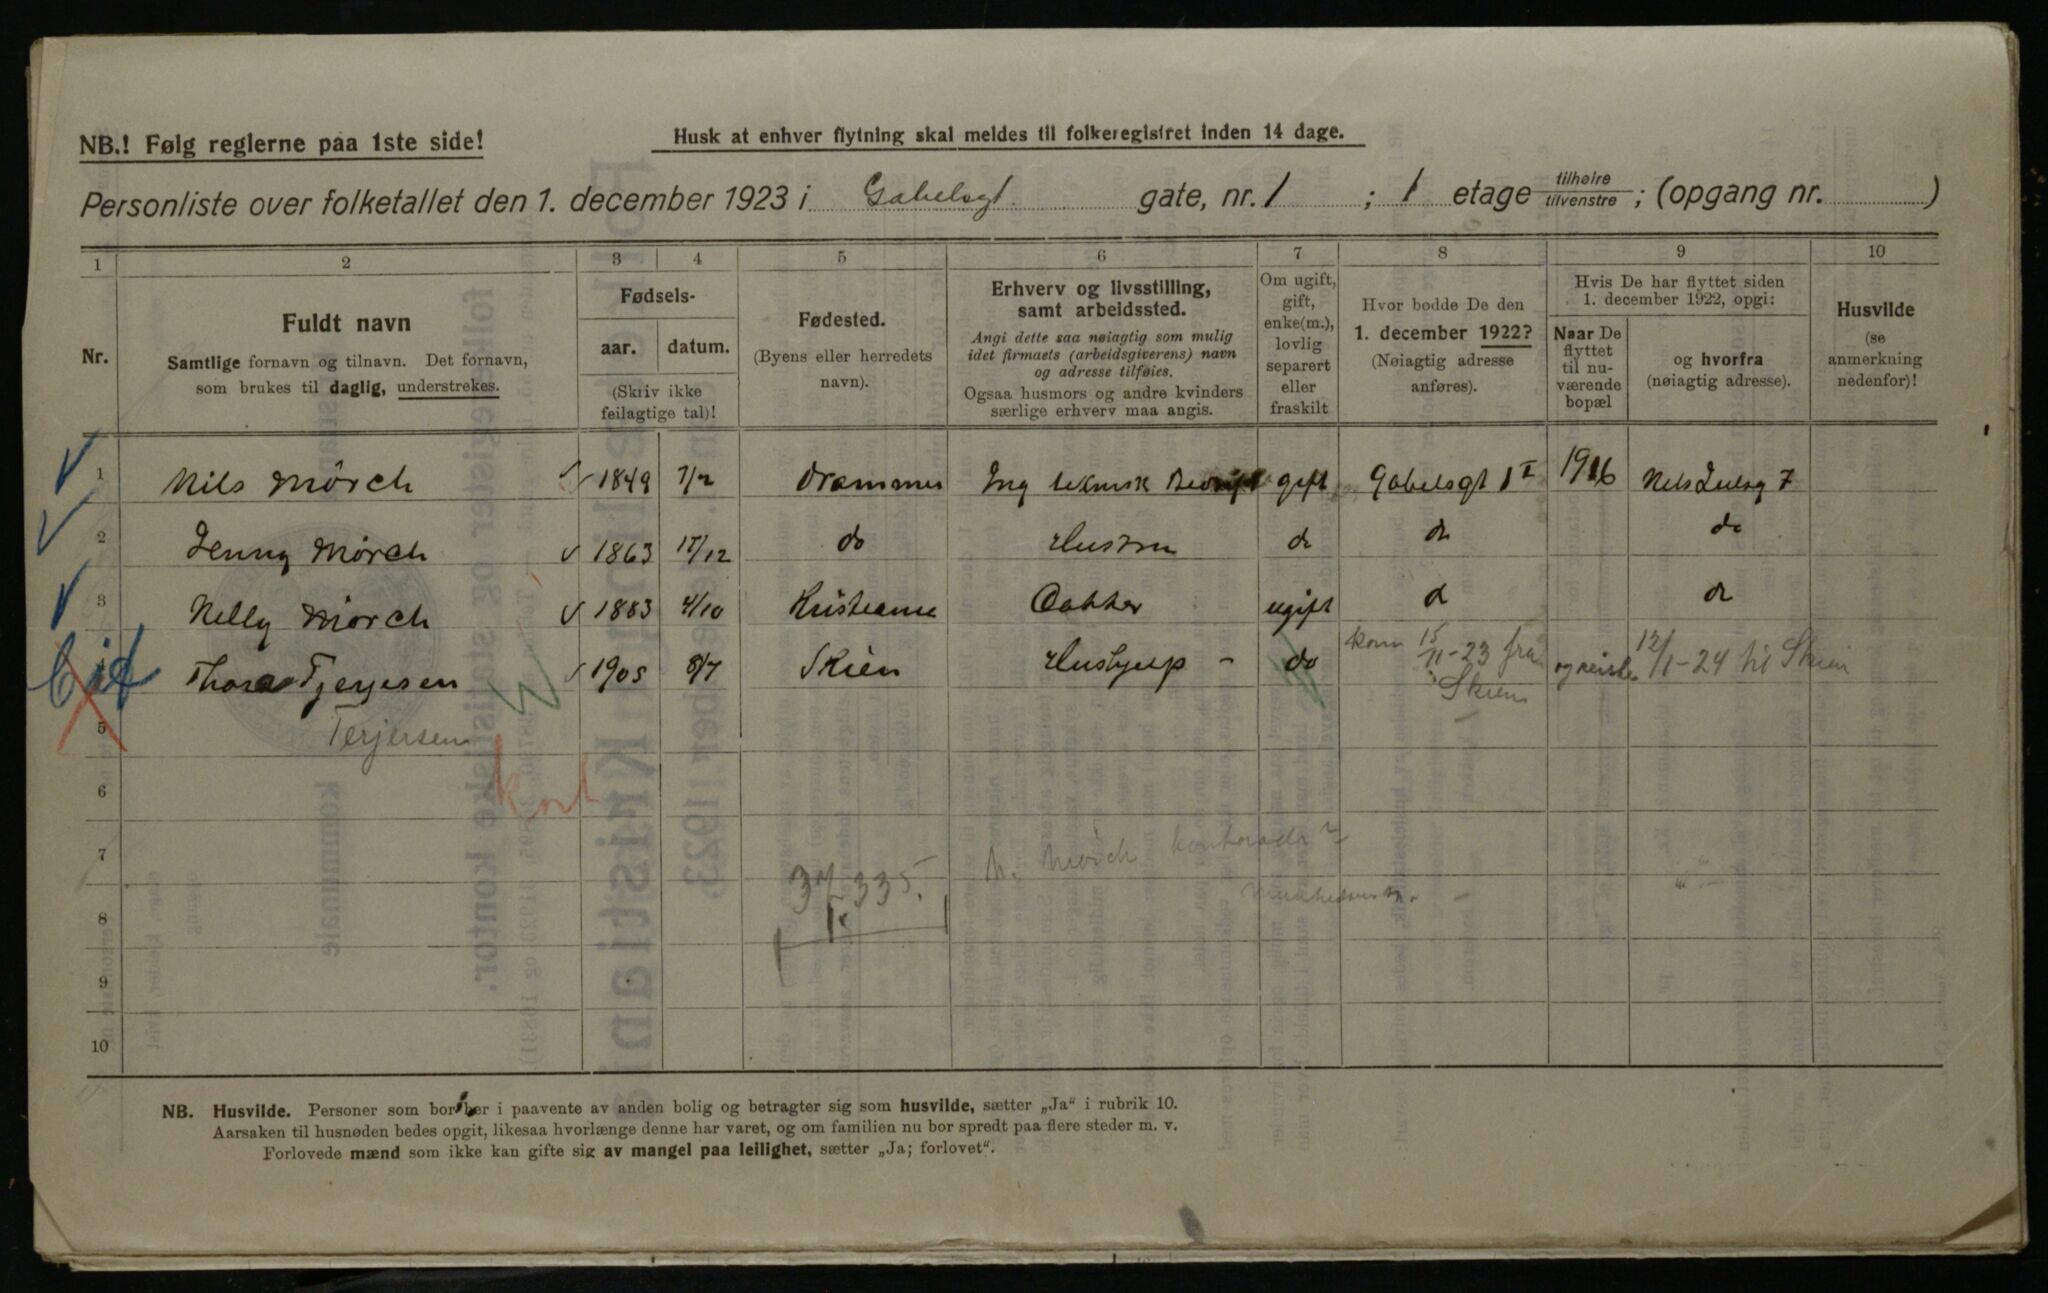 NB.! Følg reglerne paa 1ste side!
Husk at enhver flytning skal meldes til folkeregistret inden 14 dage.
Personliste over folketallet den 1. december 1923 i Gabelsgt. gate, nr. 1 ; 1 etage tilhøire tilvenstre ; (opgang nr. )
1 2 3 4 5 6 7 8 9 10
Nr.
Fuldt navn
Samtlige fornavn og tilnavn. Det fornavn,
som brukes til daglig, understrekes.
Fødsels-
aar. datum.
(Skriv ikke
feilagtige tal)!
Fødested.
(Byens eller herredets
navn).
Erhverv og livsstilling,
samt arbeidssted.
Angi dette saa nøiagtig som mulig
idet firmaets (arbeidsgiverens) navn
og adresse tilføies.
Ogsaa husmors og andre kvinders
særlige erhverv maa angis.
Om ugift,
gift,
enke(m.),
lovlig
separert
eller
fraskilt
Hvor bodde De den
1. december 1922?
(Nøiagtig adresse
anføres).
Hvis De har flyttet siden
1. december 1922, opgi:
Naar De
flyttet
til nu-
værende
bopæl
og hvorfra
(nøiagtig adresse).
Husvilde
(se
anmerkning
nedenfor)!
1 Nils Mörch 1849 7/2 Drammen Ing teknisk Bedrift gift Gabelsgt 1 I 1916 Nels Juelsg 7
2 Jenny Mörch 1863 15/12 do Hustru do do do
3 Nelly Mörch 1883 4/10 Kristiania Datter ugift do do
Thora Tjerjesen 1905 8/7 Skien Hushjelp - do kom 15/11-23 fra Skien og reiste 12/1-24 til Skien
5 Terjersen
kort
6
7 N. Mörch kontoradr?
37.335.
8
1.
9
10
NB. Husvilde. Personer som bor her i paavente av anden bolig og betragter sig som husvilde, sætter „Ja" i rubrik 10.
Aarsaken til husnøden bedes opgit, likesaa hvorlænge denne har varet, og om familien nu bor spredt paa flere steder m. v.
Forlovede mænd som ikke kan gifte sig av mangel paa leilighet, sætter „Ja; forlovet".